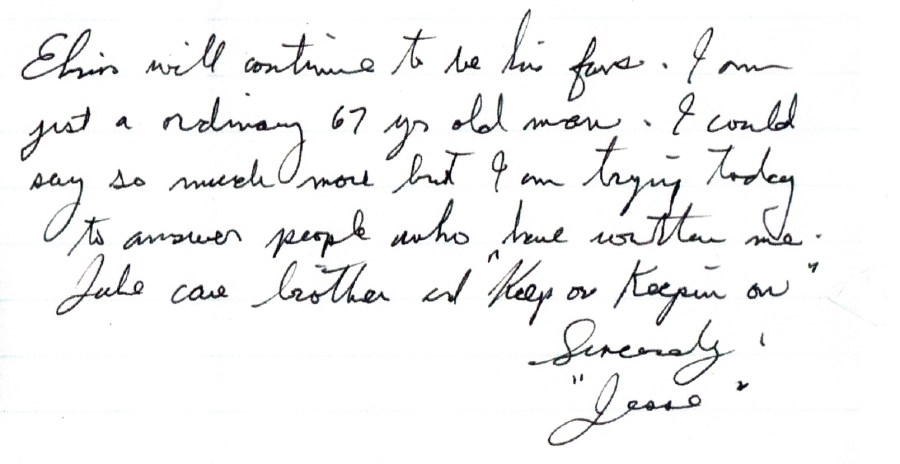 Elvis will continue to be his fans. I am
just a ordinary 67 yrs old man. I could
say so much more but I am trying today
to answer people who have written me.
Take care brother and "Keep on Keepin on"
Sincerely,
"Jesse"